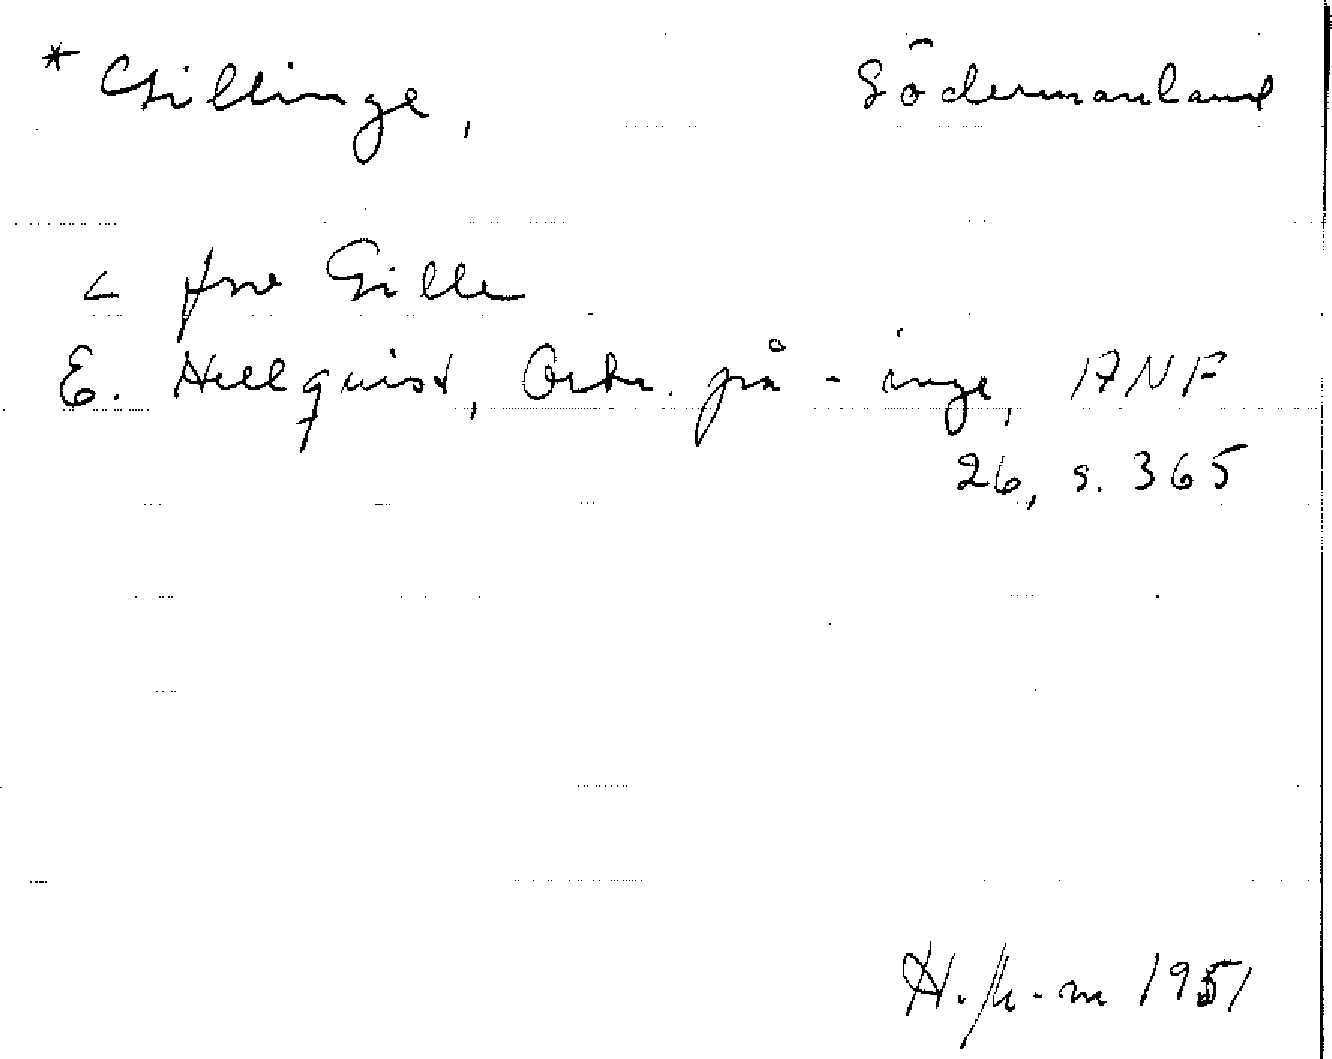 * Gillinge, Södermanland
< fne Gille
E. Hellquist, Ortn. på -inge, ANF
26, s. 365
1951